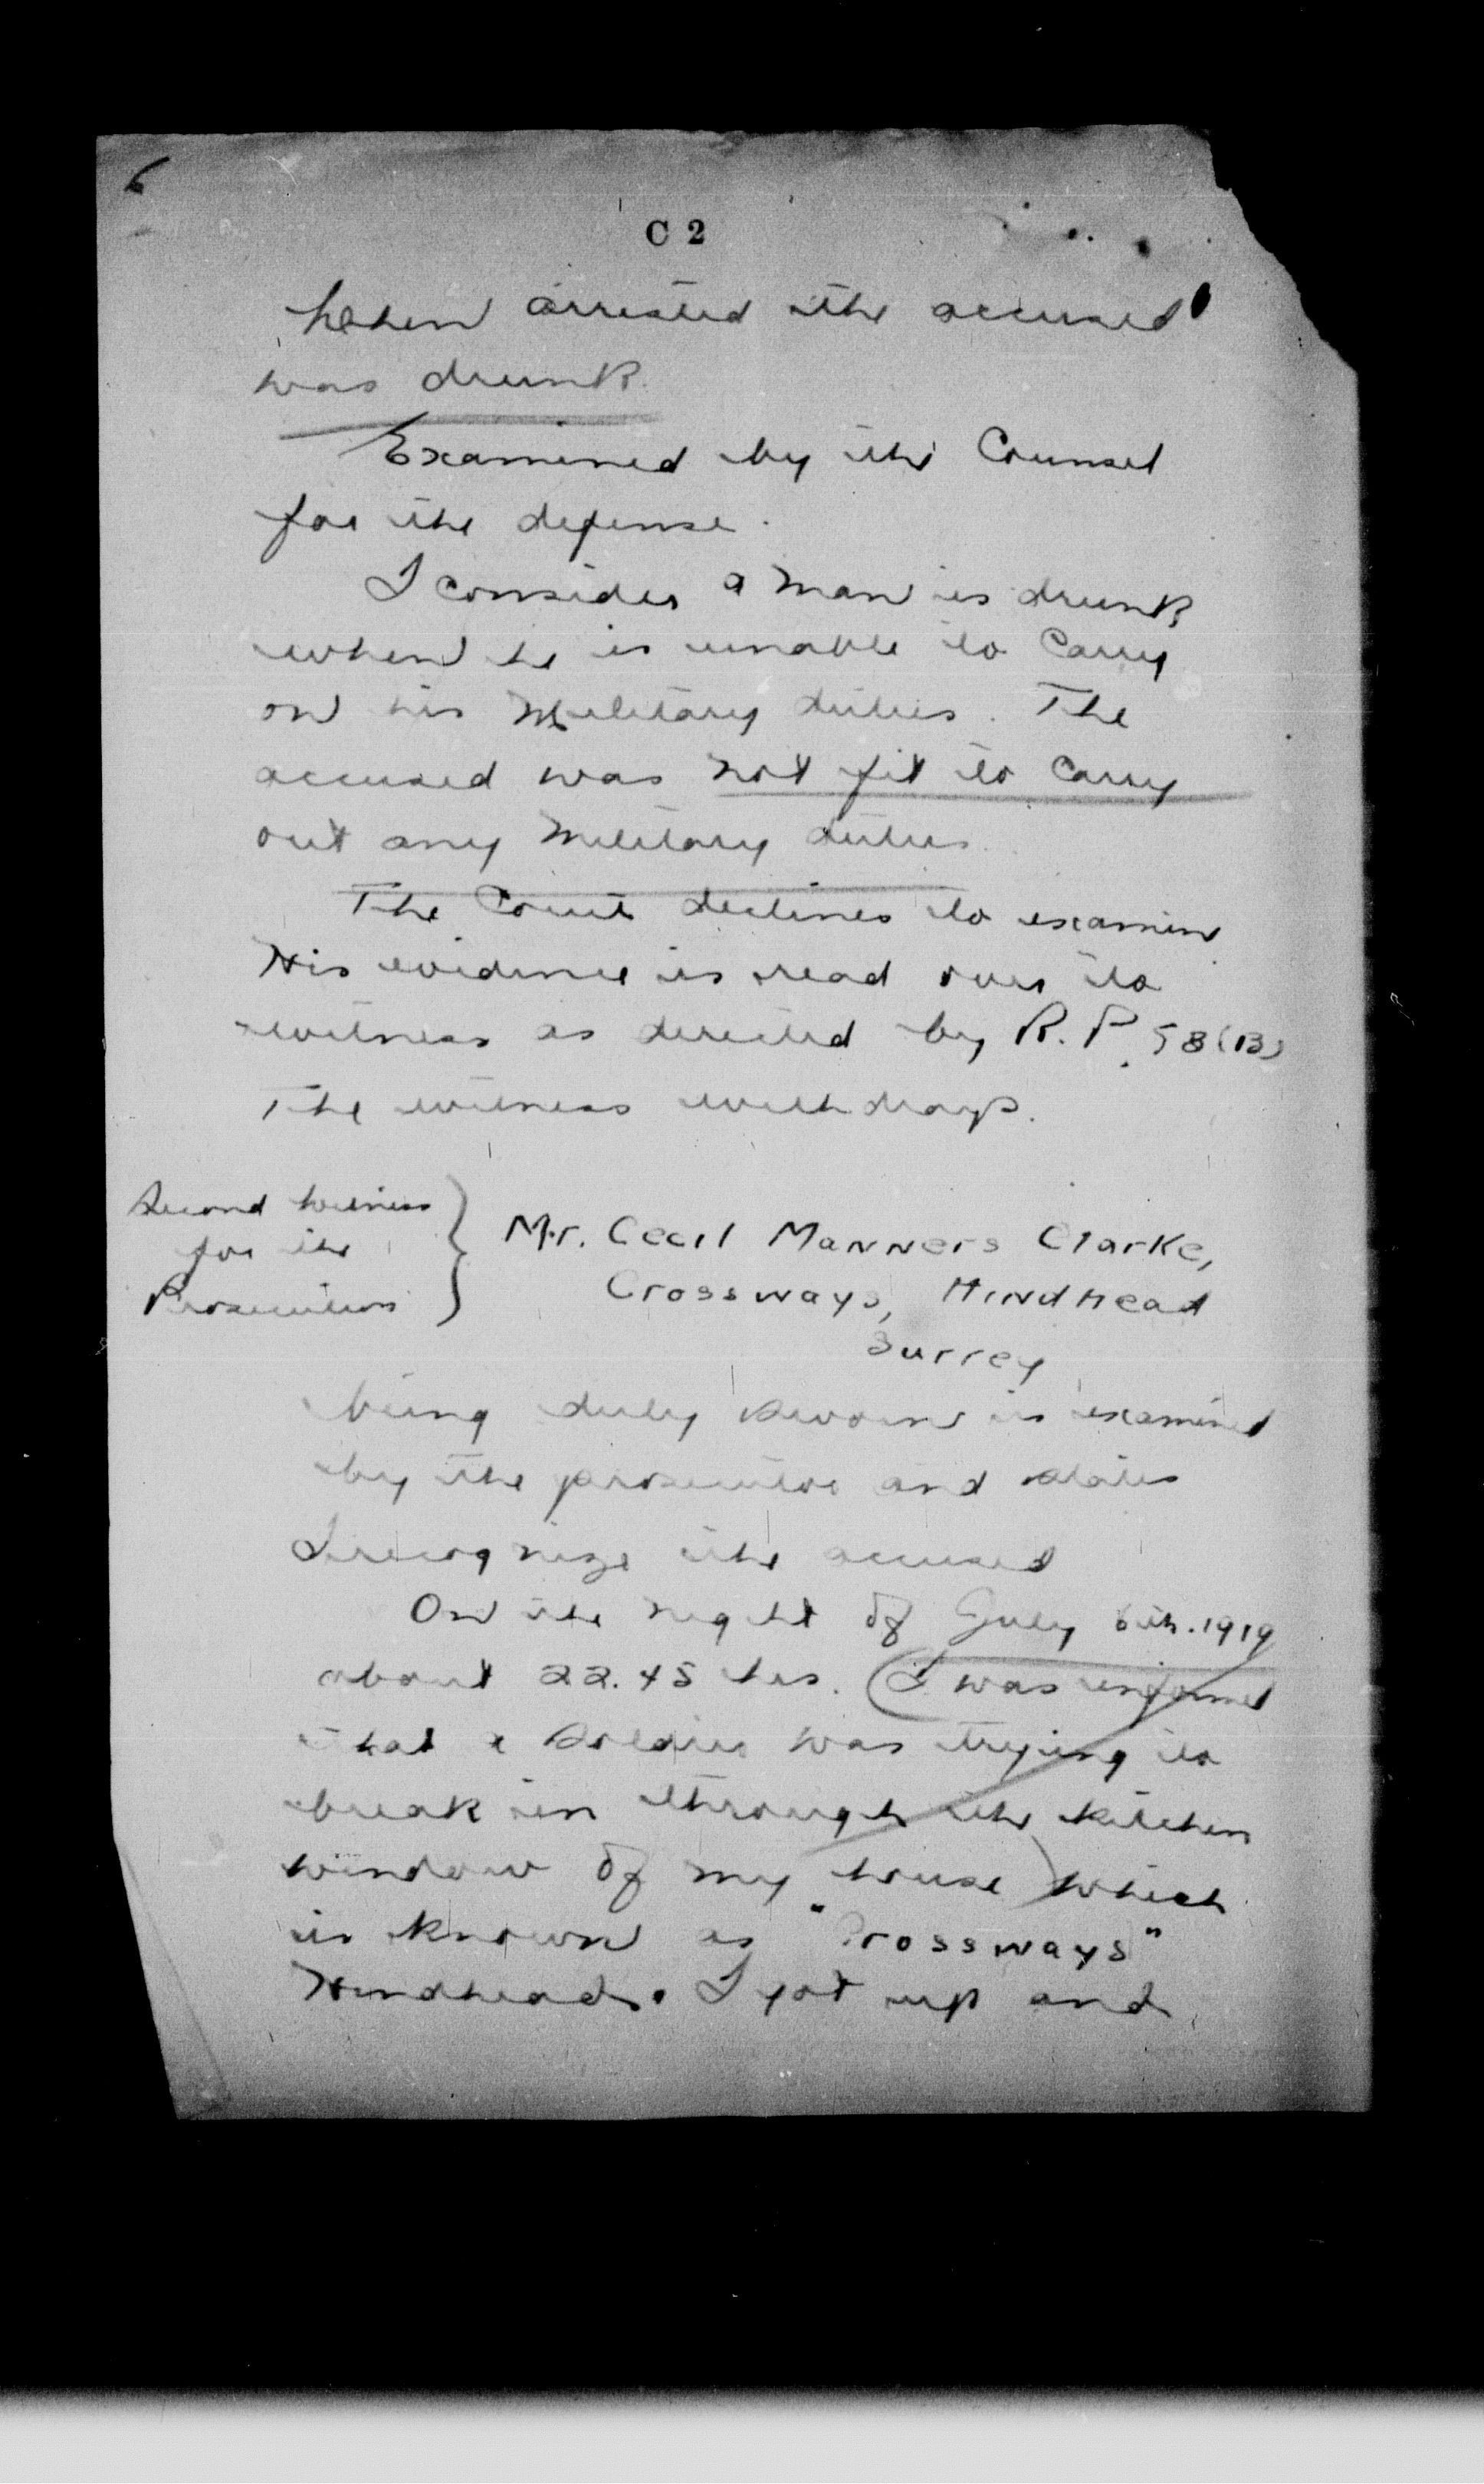 6
C 2
When arrested the accused
was drunk
Examined by the Counsel
for the defense.
I consider a man is drunk
when he is unable to carry
on his Military duties. The
accused was not fit to carry
out any Military duties.
The Court declines to examine
His evidence is read over to
witness as directed by R.P. 58(B)
The witness withdraws.
Second Witness
for the
Prosecution
Mr. Cecil Manners Clarke,
Crossways, Hindhead
Surrey
being duly sworn is examined
by the prosecutor and states
I recognize the accused
On the night of July 6th. 1919
about 22.45 hrs. (I was informed
that a soldier was trying to
break in through the kitchen
window of my house) which
is known as "Crossways"
Hindhead. I got up and